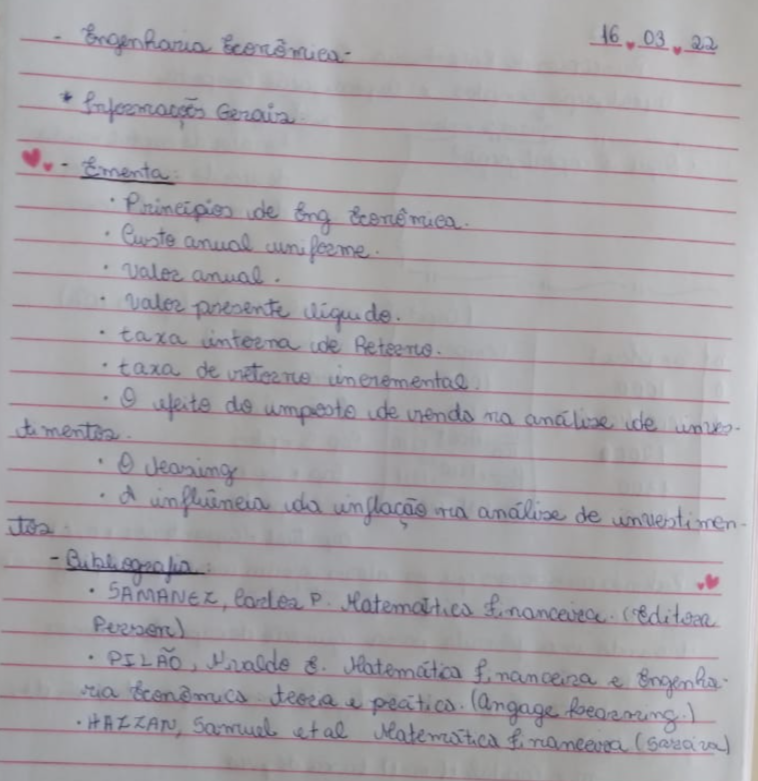 - Engenharia Econômica - 16.03.22
* Informações Gerais.
- Ementa:
· Princípios de Eng Econômica.
· Custo anual uniforme.
· valor anual.
· valor presente líquido.
· taxa interna de Retorno.
· taxa de retorno incremental.
· O efeito do imposto de renda na análise de inves-
timentos.
· O leasing
· A influência da inflação na análise de investimen-
tos.
- Bibliografia:
· SAMANEZ, Carlos P. Matemática financeira. (editora
Person)
· PILÃO, Nivaldo E. Matemática financeira e Engenha-
ria Econômica teoria e prática. (angage learning.)
· HAZZAN, Samuel et al Matemática financeira (saraiva)